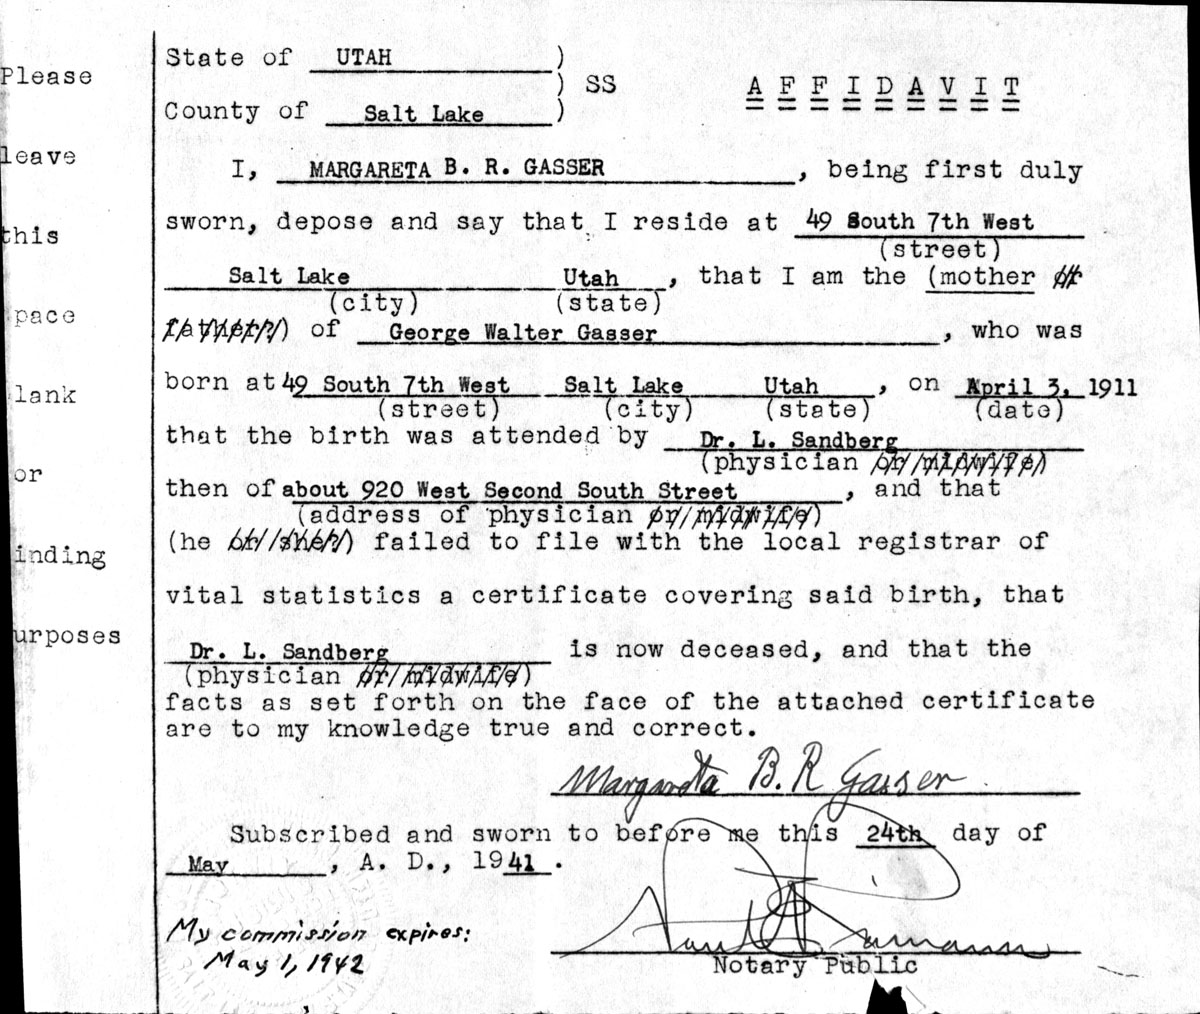 Please
leave
this
pace
lank
or
inding
urposes
State of UTAH )
) SS AFFIDAVIT
County of Salt Lake )
I, MARGARETA B. R. GASSER, being first duly
sworn, depose and say that I reside at 49 South 7th West
(street)
Salt Lake Utah, that I am the (mother or
(city) (state)
father) of George Walter Gasser, who was
born at 49 South 7th West Salt Lake Utah, on April 3, 1911
(street) (city) (state) (date)
that the birth was attended by Dr. L. Sandberg
(physician or midwife)
then of about 920 West Second South Street, and that
(address of physician or midwife)
(he or she) failed to file with the local registrar of
vital statistics a certificate covering said birth, that
Dr. L. Sandberg is now deceased, and that the
(physician or midwife)
facts as set forth on the face of the attached certificate
are to my knowledge true and correct.
Margareta B. R Gasser
Subscribed and sworn to before me this 24th day of
May, A. D., 1941.
My commission expires:
May 1, 1942
Notary Public